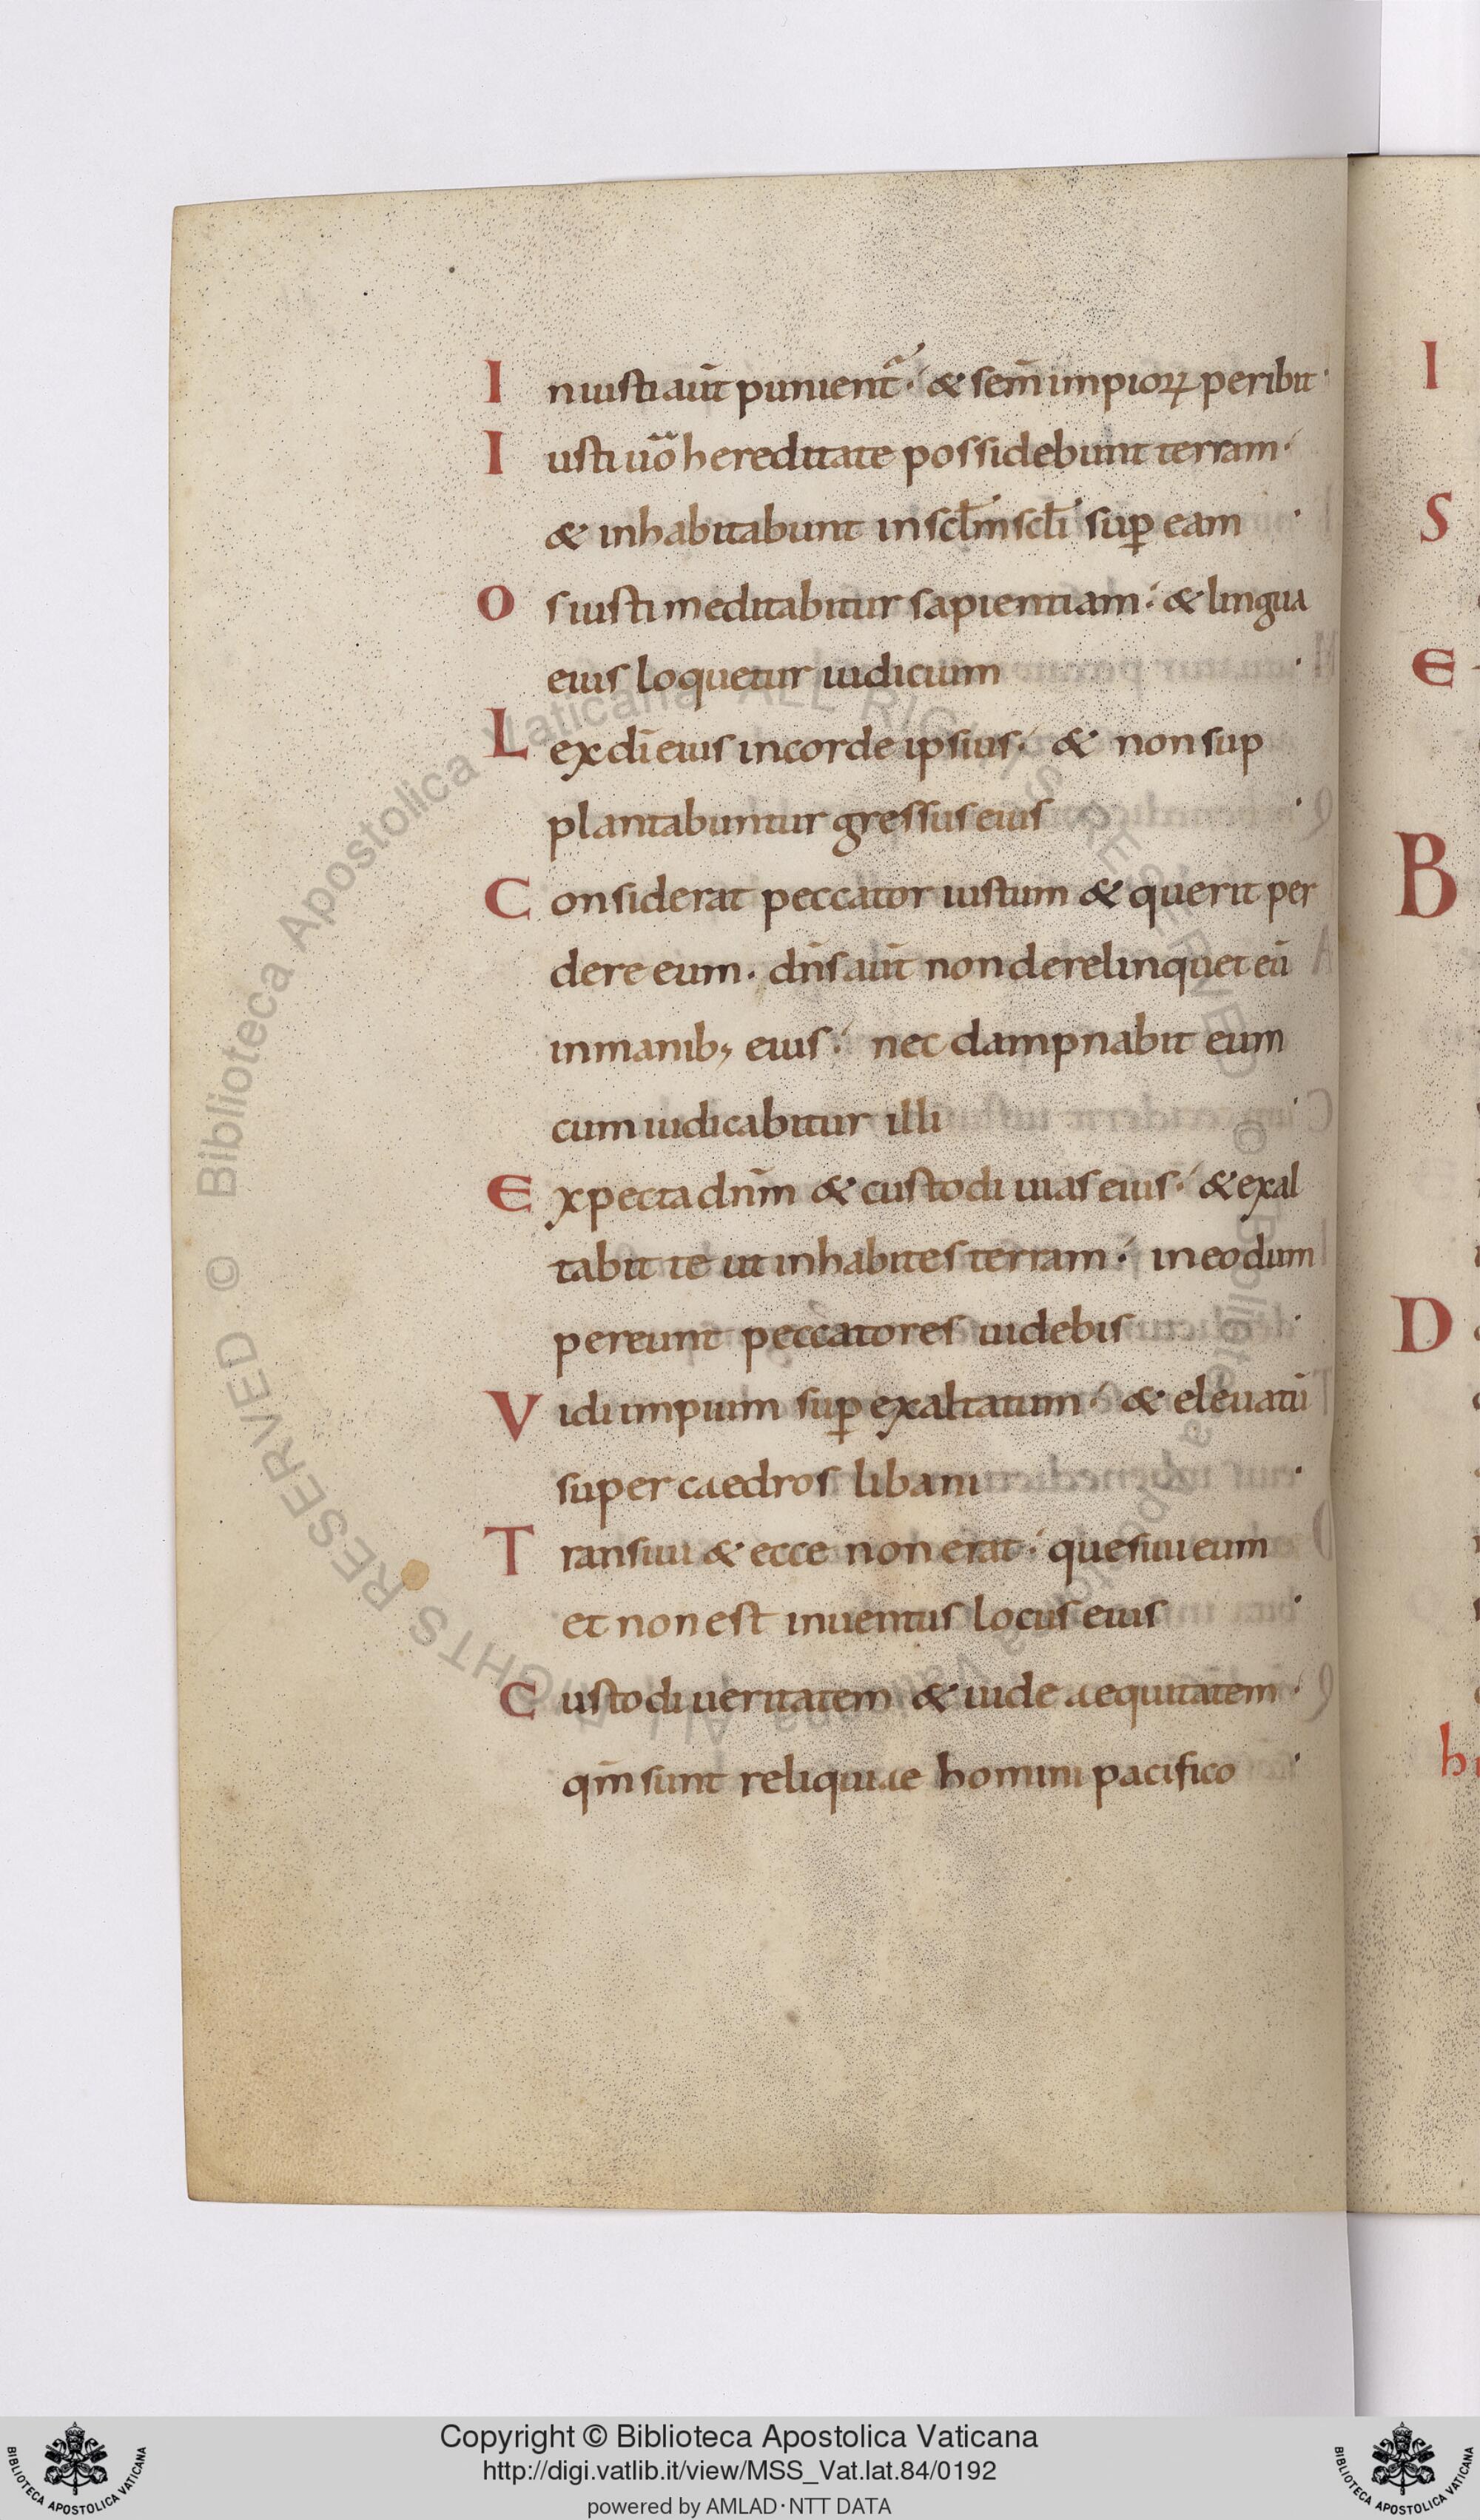 Iniusti aut̄ punient᷑ ⁖ & sem̄ impioꝝ peribit ·
Iusti uō hereditate possidebunt terram ⁖
& inhabitabunt in scl̄m scl̄i sup̱ eam ·
Os iusti meditabitur sapientiam ⁖ & lingua
eius loquetur iudicium ·
Lex dī eius in corde ipsius ⁖ & non sup
plantabuntur gressus eius ·
Considerat peccator iustum & querit per
dere eum · dn̄s aut̄ non derelinquet eū
in manib; eius ⁖ nec dampnabit eum
cum iudicabitur illi ·
Expecta dn̄m & custodi uias eius ⁖ & exal
tabit te ut inhabites terram ⁖ in eo dum
pereunt peccatores uidebis ·
Vidi impium sup̱ exaltatum ⁖ & eleuatū
super caedros libani ·
Transiui & ecce non erat ⁖ quesiui eum
et non est inuentus locus eius ·
Custodi ueritatem & uide aequitatem ⁖
qm̄ sunt reliquiae homini pacifico ·
I
S
E
B
D
h
© Biblioteca Apostolica Vaticana ALL RIGHTS RESERVED
Copyright © Biblioteca Apostolica Vaticana
http://digi.vatlib.it/view/MSS_Vat.lat.84/0192
powered by AMLAD·NTT DATA
BIBLIOTECA APOSTOLICA VATICANA
BIBLIOTECA APOSTOLICA VATICANA